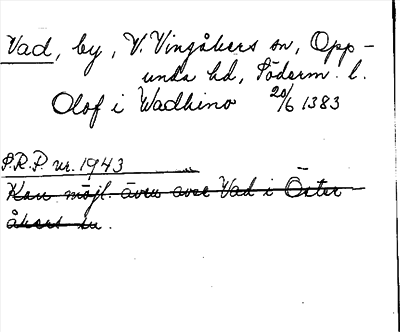 Vad, by, V. Vingåkers sn, Opp-
unda hd, Söderm. l.
Olof i Wadhino 20/6 1383
S.R.P. nr. 1943
Kan möjl. även avse Vad i Öster-
åkers sn.